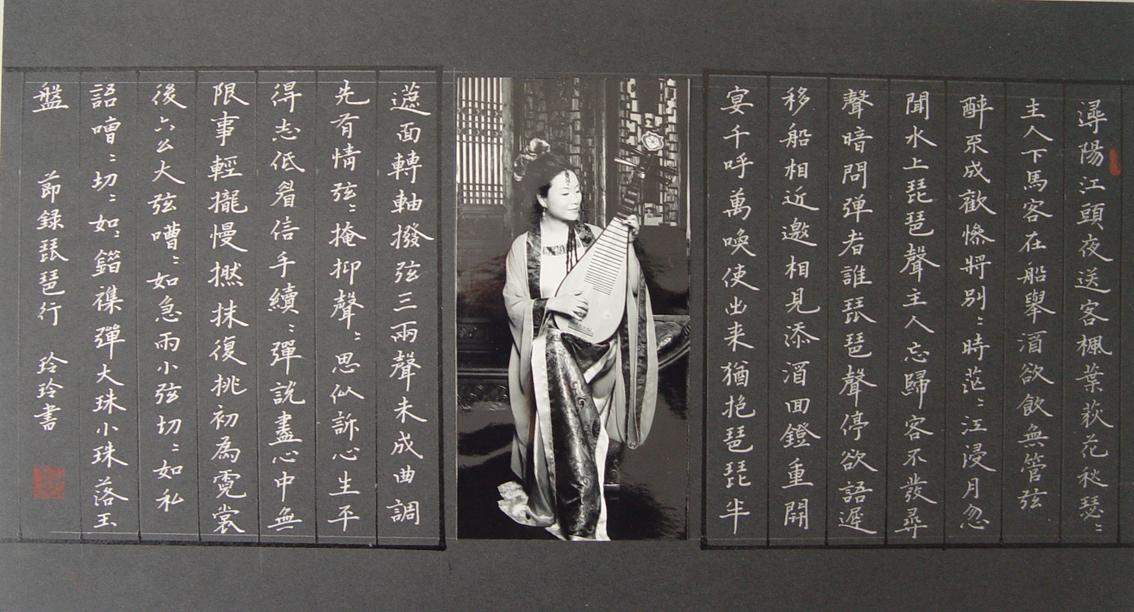 潯陽江頭夜送客楓葉荻花秋瑟〻
主人下馬客在船舉酒欲飲無管弦
醉不成歡慘將別〻時茫〻江浸月忽
聞水上琵琶聲主人忘歸客不發尋
聲暗問彈者誰琵琶聲停欲語遲
移船相近邀相見添酒回鐙重開
宴千呼萬喚使出来猶抱琵琶半
遮面轉軸撥弦三兩聲未成曲調
先有情弦〻掩抑聲〻思似訴心生平
得志低眉信手續〻彈説盡心中無
限事輕攏慢撚抹復挑初為霓裳
後六幺大弦嘈〻如急雨小弦切〻如私
語嘈〻切〻如〻錯雜彈大珠小珠落玉
盤 節録琵琶行 玲玲書